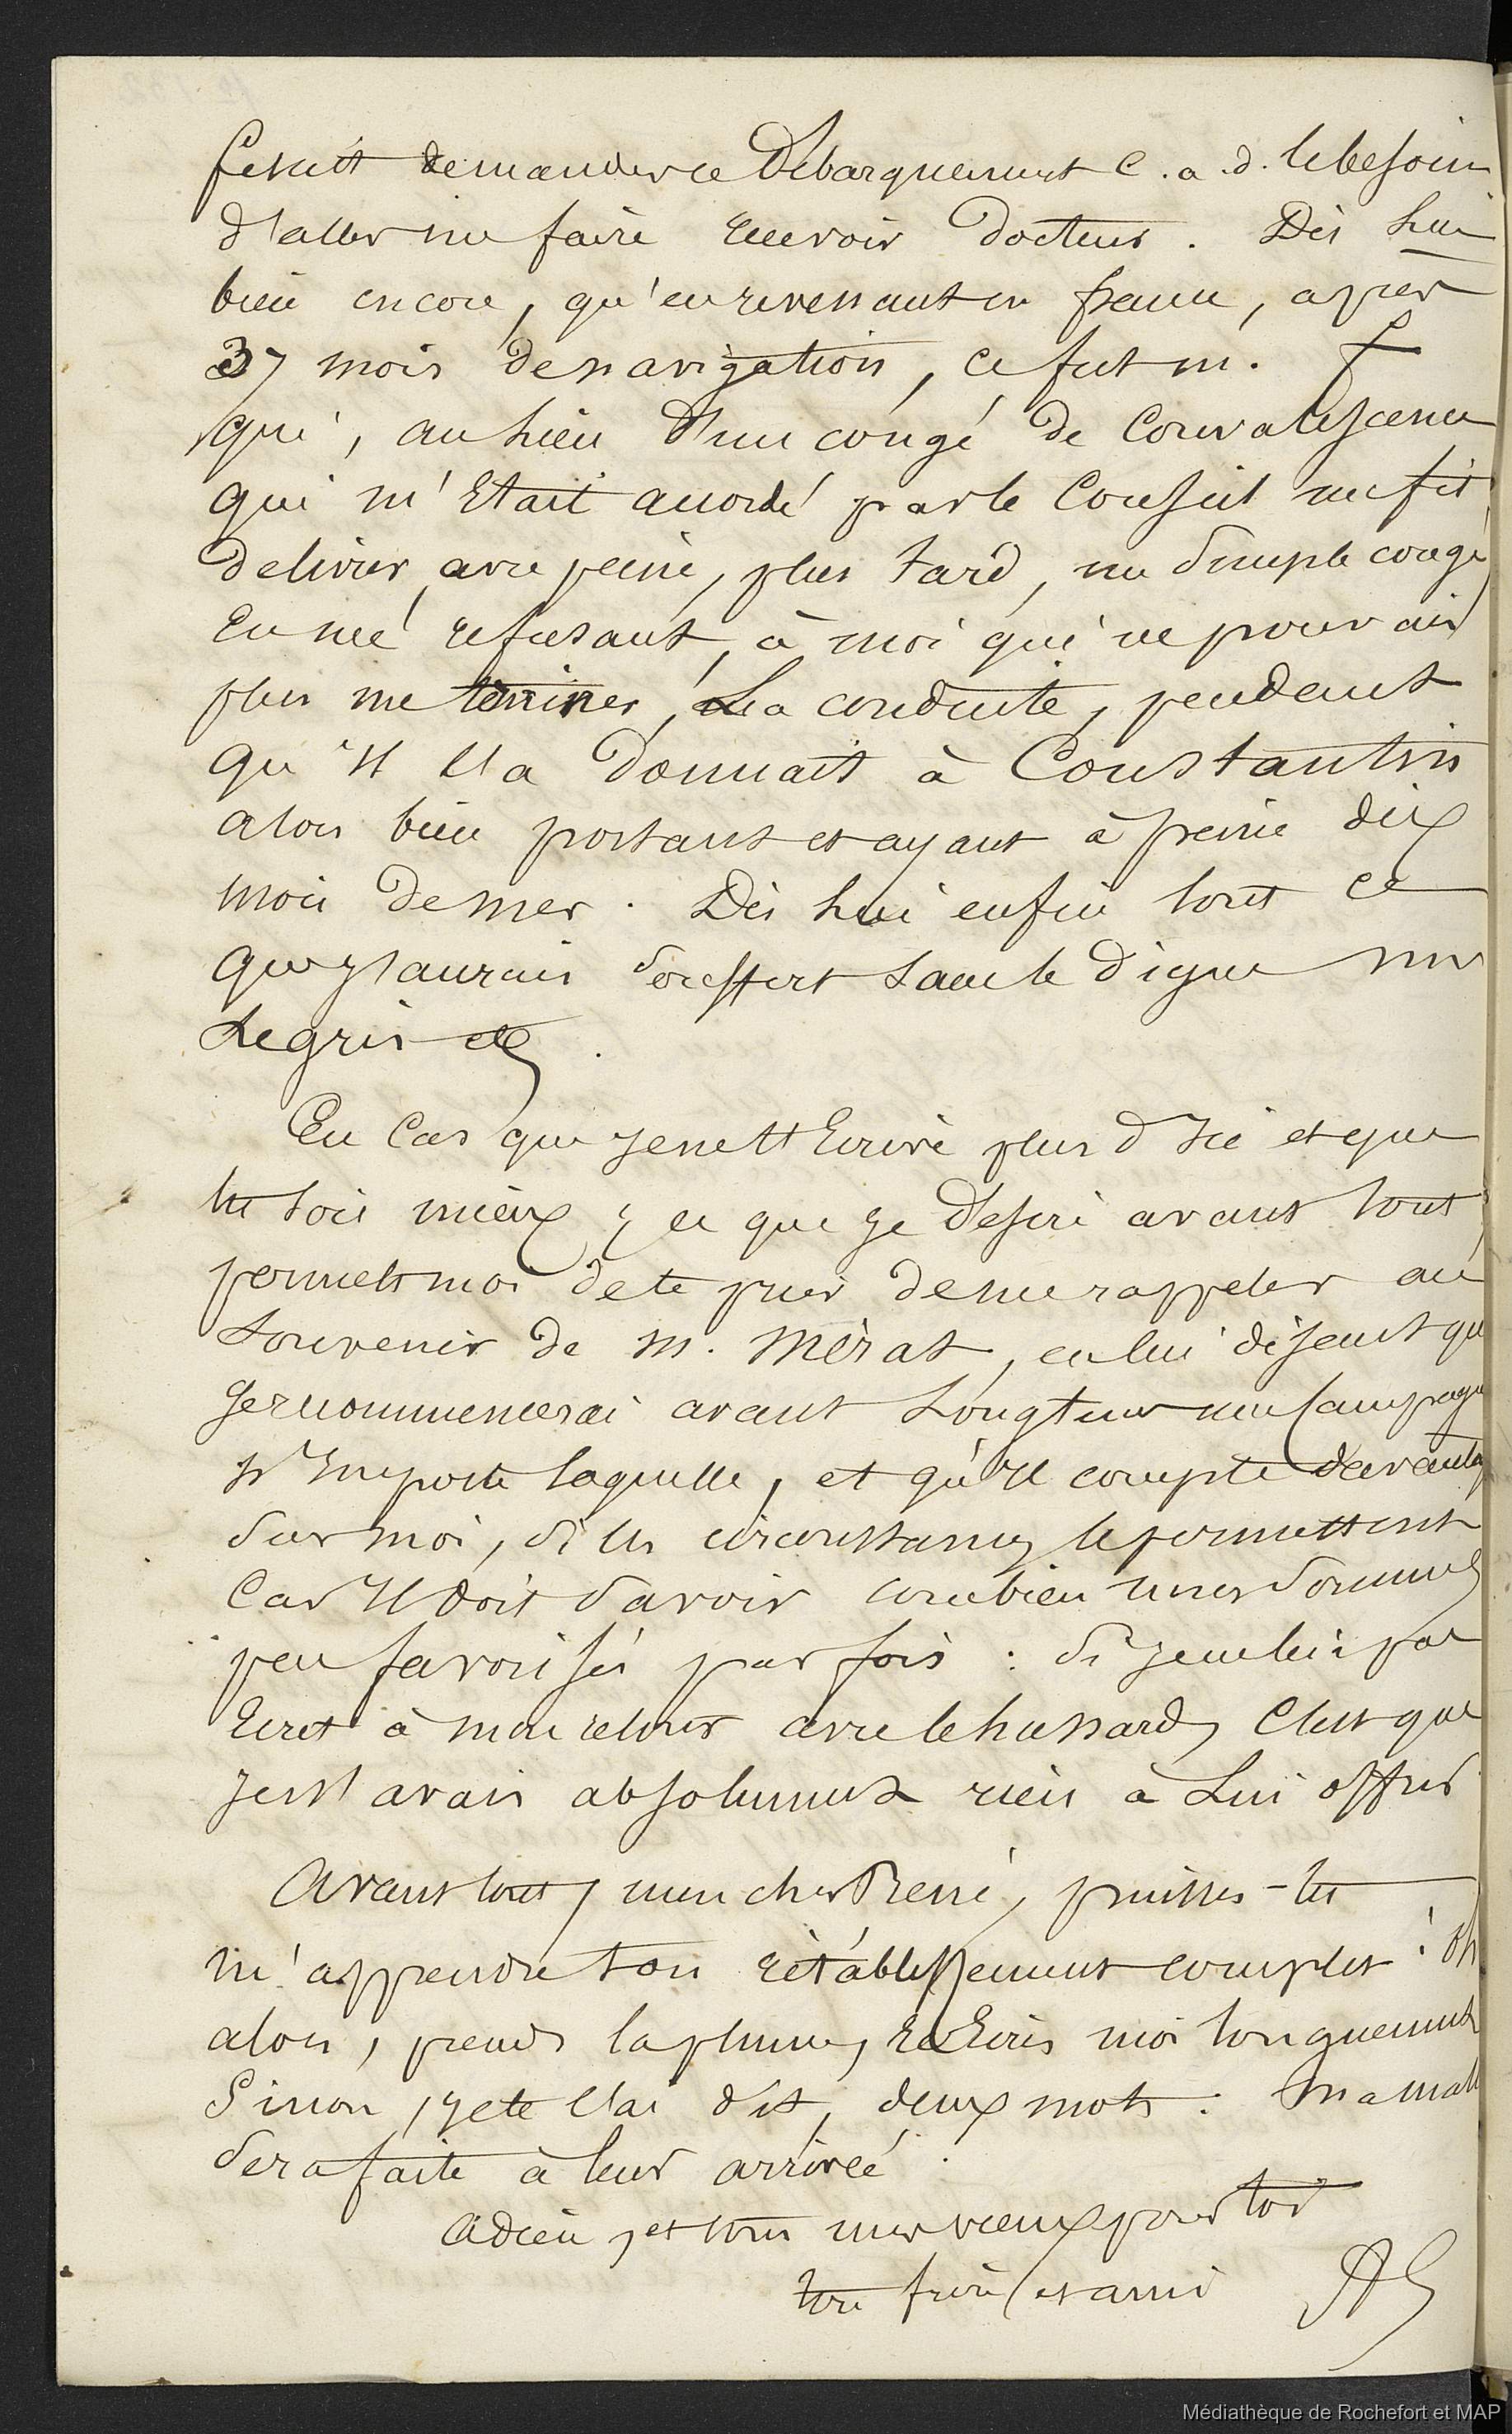 demander ce Débarquement c. a. d. le besoin
d'aller me faire recevoir Docteur. Dis lui
bien encore, qu'en revenant en france, après
37 mois de navigation, ce fut m. F
qui, au lieu d'un congé de Convalescence
qui m'était accordé par le Conseil me fit
delivrer avec peine, plus tard, un simple congé
en me refusant, à moi qui ne pouvais
plus me , La conduite, pendant
qu'Il l'a Donnait à Constantin
alors bien portant et ayant à peine dix
mois de mer. Dis lui enfin tout ce
que j'aurais souffert sans le digne mr
Legris etc.
En Cas que je ne t'Ecrive plus d'Ici et que
tu sois mieux, ce que je desire avant tout
permets moi de te prier de me rappeler au
Souvenir de M. Mérat, en lui disant que
je recommencerai avant Longtems une Campagne
N'Importe laquelle, et qu'Il compte davantage
sur moi, si les circonstances le permettent
Car Il doit savoir combien nous sommes
peu favorisés par fois : si je ne lui ai pas
Ecrit à mon retour avec le hussard, C'est que
je n'avais absolument rien à Lui offrir
Avant tout, mon cher René, puisses-tu
m'apprendre ton rétablissement complet ! Oh
alors, prends la plume, et Ecris moi longuement
Sinon, je te l'ai dit, deux mots. Ma malle
sera faite à leur arrivée.
Adieu, et tous mes vœux pour toi
ton frère et ami
Médiathèque de Rochefort et MAP